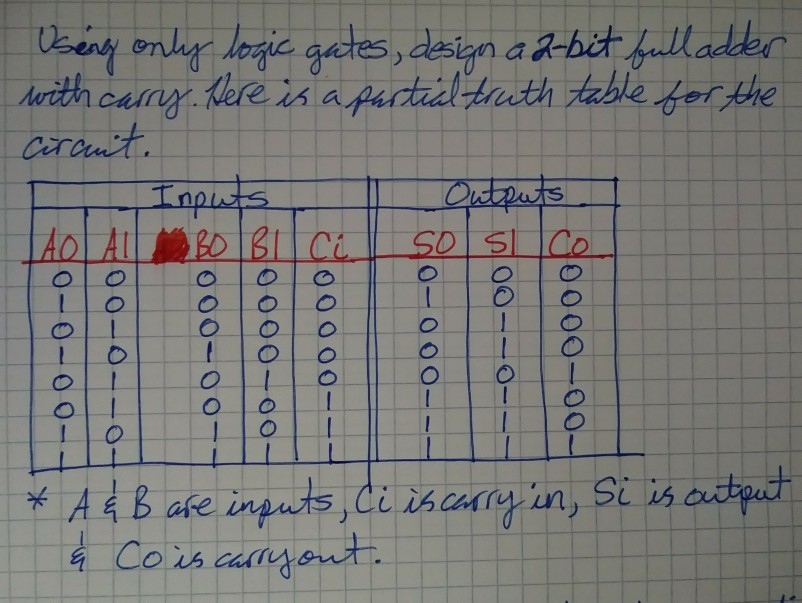 Using only logic gates, design a 2-bit full adder
with carry. Here is a partial truth table for the
circuit.
Inputs Outputs
A0 A1 B0 B1 Ci S0 S1 Co
0 0 0 0 0 0 0 0
1 0 0 0 0 1 0 0
0 1 0 0 0 0 1 0
1 0 1 0 0 0 1 0
0 1 0 1 0 0 0 1
0 1 0 0 1 1 1 0
1 0 1 0 1 1 1 0
1 1 1 1 1 1 1 1
* A & B are inputs, Ci is carry in, Si is output
& Co is carry out.